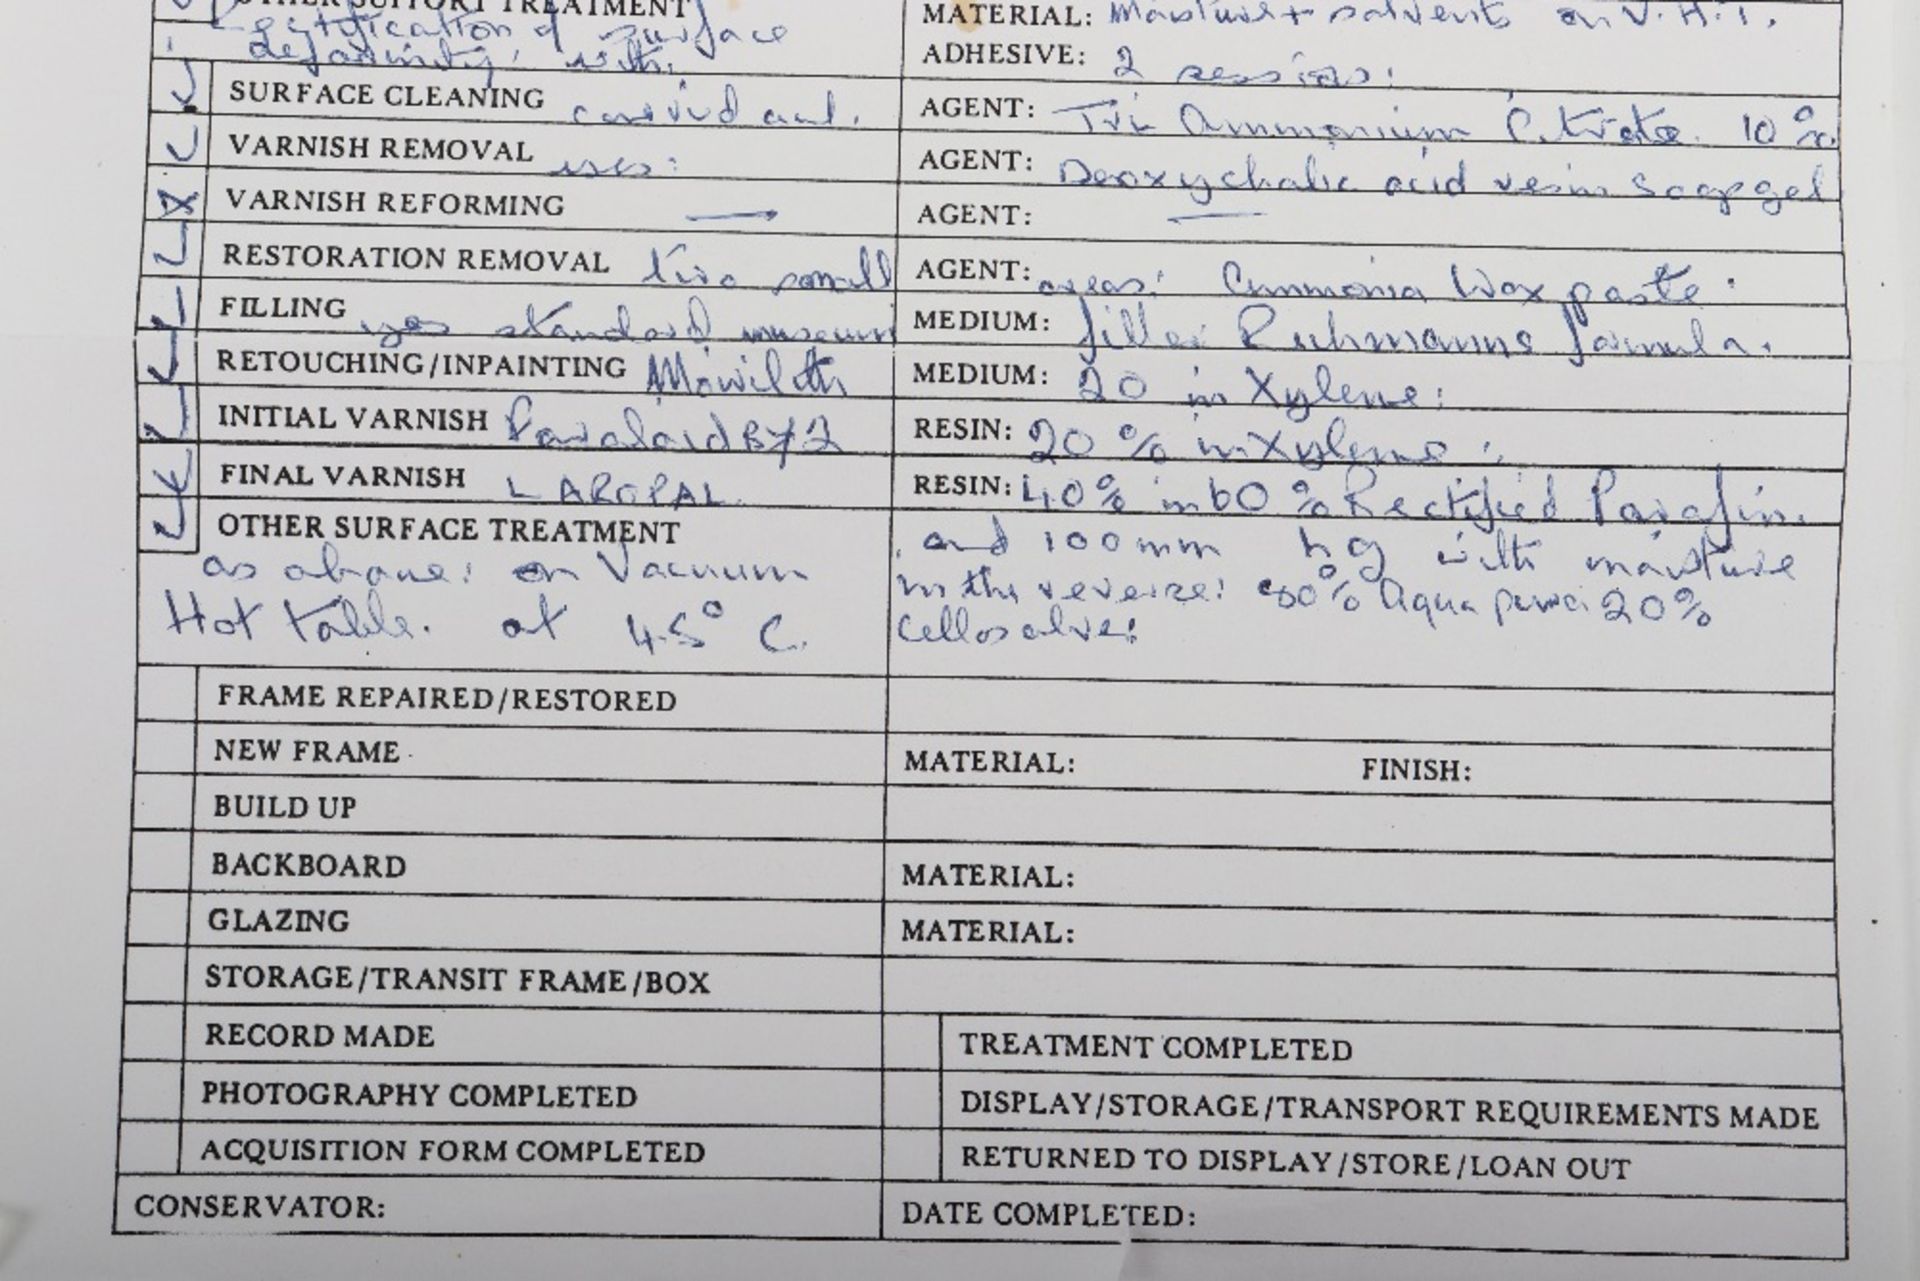 OTHER SUPPORT TREATMENT MATERIAL: Moisture + solvents on V.H.T.
Rectification of surface
deformity: with: ADHESIVE: 2 sessions:
SURFACE CLEANING carried out. AGENT: Tri Ammonium Citrate 10%
VARNISH REMOVAL yes: AGENT: Deoxycholic acid resin soap gel
VARNISH REFORMING — AGENT: —
RESTORATION REMOVAL two small AGENT: areas: Ammonia Wax paste:
FILLING yes standard museum MEDIUM: filler Ruhmanns formula.
RETOUCHING/INPAINTING Mowilith MEDIUM: 20 in Xylene:
INITIAL VARNISH Paraloid B72 RESIN: 20% in Xylene:
FINAL VARNISH LAROPAL RESIN: 40% in 60% Rectified Parafin.
OTHER SURFACE TREATMENT and 100mm hg with moisture
as above: on Vacuum in the reverse: 80% Aqua pura: 20%
Hot table. at 45° C. Cellosolve:
FRAME REPAIRED/RESTORED
NEW FRAME MATERIAL: FINISH:
BUILD UP
BACKBOARD MATERIAL:
GLAZING MATERIAL:
STORAGE/TRANSIT FRAME/BOX
RECORD MADE TREATMENT COMPLETED
PHOTOGRAPHY COMPLETED DISPLAY/STORAGE/TRANSPORT REQUIREMENTS MADE
ACQUISITION FORM COMPLETED RETURNED TO DISPLAY/STORE/LOAN OUT
CONSERVATOR: DATE COMPLETED: